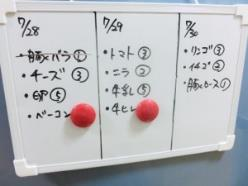 7/28
・豚バラ ①
・チーズ ③
・卵 ⑤
・ベーコン
7/29
・トマト ③
・ニラ ②
・牛乳 ⑤
・牛ヒレ
7/30
・リンゴ ③
・イチゴ ②
・豚ロース ①